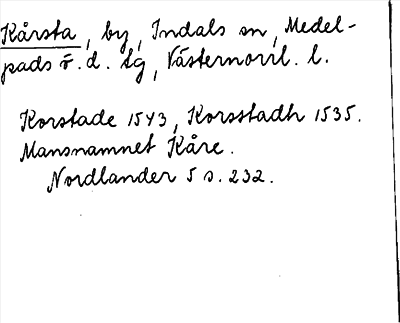 Kårsta, by, Indals sn, Medel-
pads v̄. d. tg, Västernorrl. l.
Korstade 1543, Korsstadh 1535.
Mansnamnet Kåre.
Nordlander 5 s. 232.